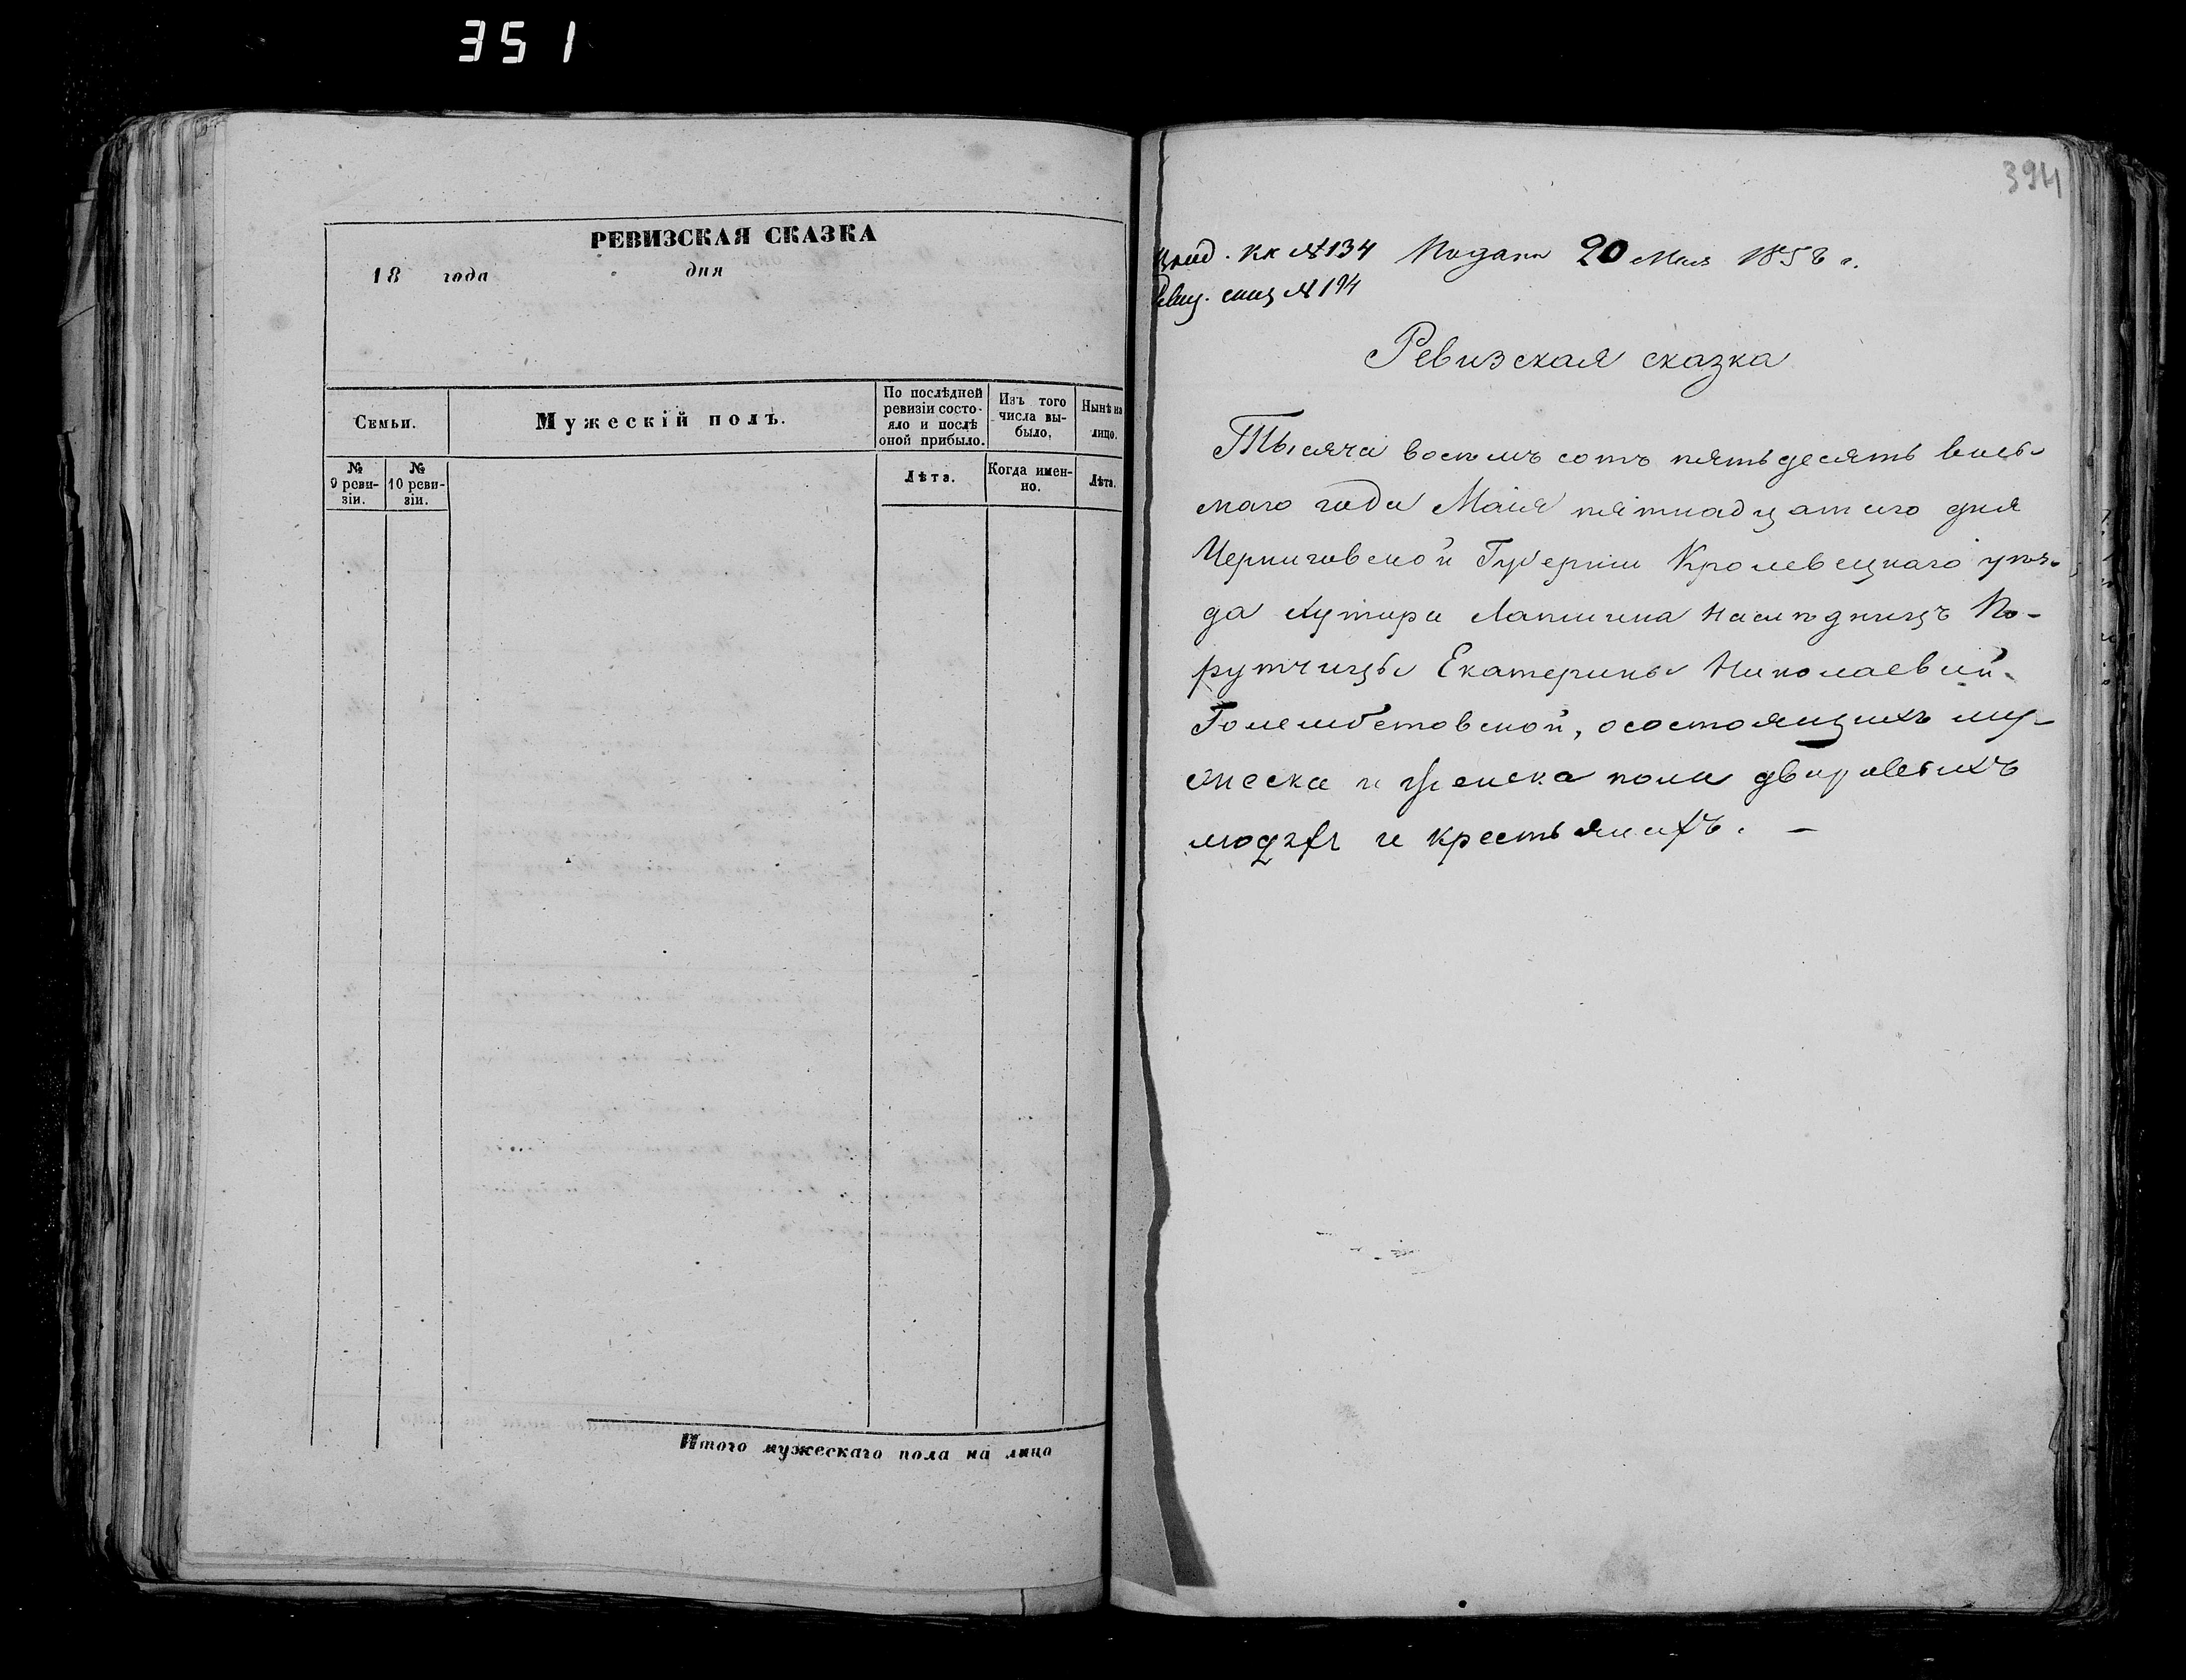 351
РЕВИЗСКАЯ СКАЗКА
18 года дня
Семьи.
Мужескій полъ.
По послѣдней ревизіи состо-
яло и послѣ
оной прибыло.
Изъ того
числа вы-
было,
Нынѣ на
лицо.
№
9 реви-
зіи.
№
10 реви-
зіи.
Лѣта.
Когда имен-
но.
Лѣта.
Итого мужескаго пола на лицо
394
кк №134 Подана 20 Мая 1858 г.
№ 194
Ревизская сказка
Тысяча восемь сотъ пятьдесять вось-
маго года Маія пятнадцатаго дня
Черниговской Губерніи Кролевецкаго уѣз-
да Хутора Лапшина наслѣдницъ По-
рутчицы Екатерины Николаевны
Голембетовской, о состоящихъ му-
жеска и женска пола дворовыхъ
людяхъ и крестьянахъ. —